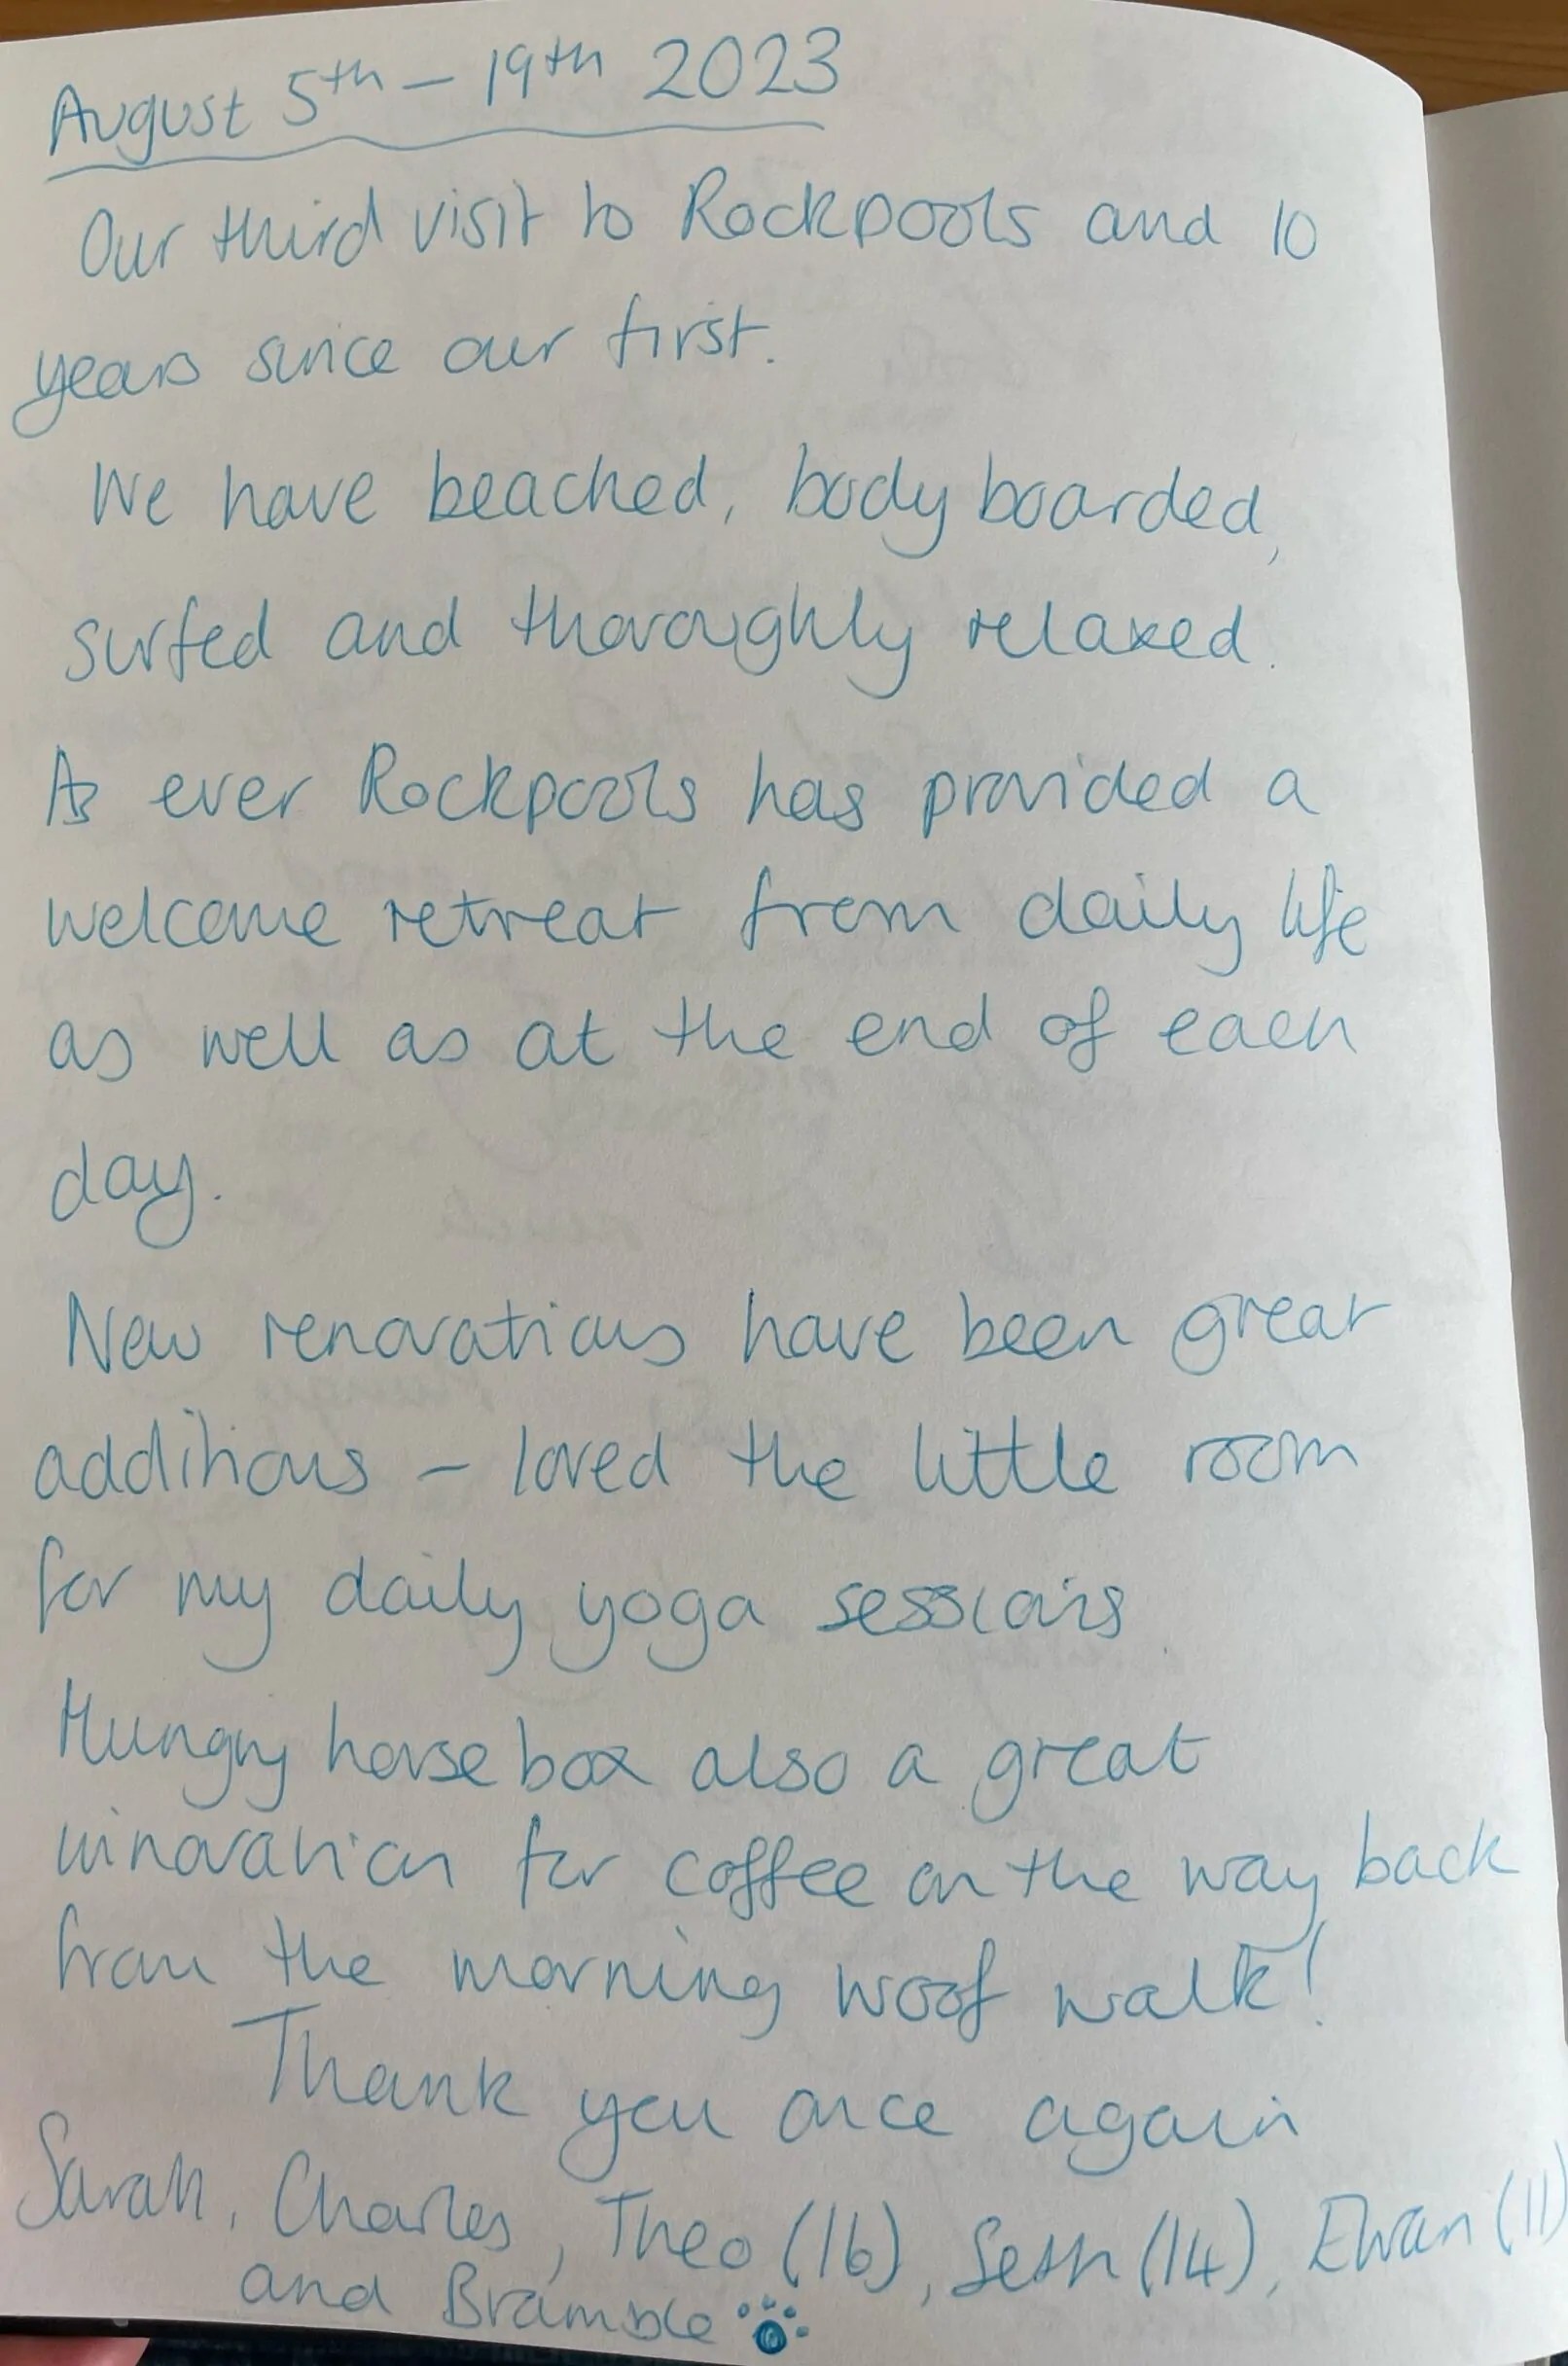 August 5th - 19th 2023
Our third visit to Rockpools and 10
years since our first.
We have beached, body boarded,
surfed and thoroughly relaxed.
As ever Rockpools has provided a
welcome retreat from daily life
as well as at the end of each
day.
New renovations have been great
additions - loved the little room
for my daily yoga sessions.
Hungry horse box also a great
innovation for coffee on the way back
from the morning woof walk!
Thank you once again
Sarah, Charles, Theo (16), Seth (14), Ewan (11)
and Bramble